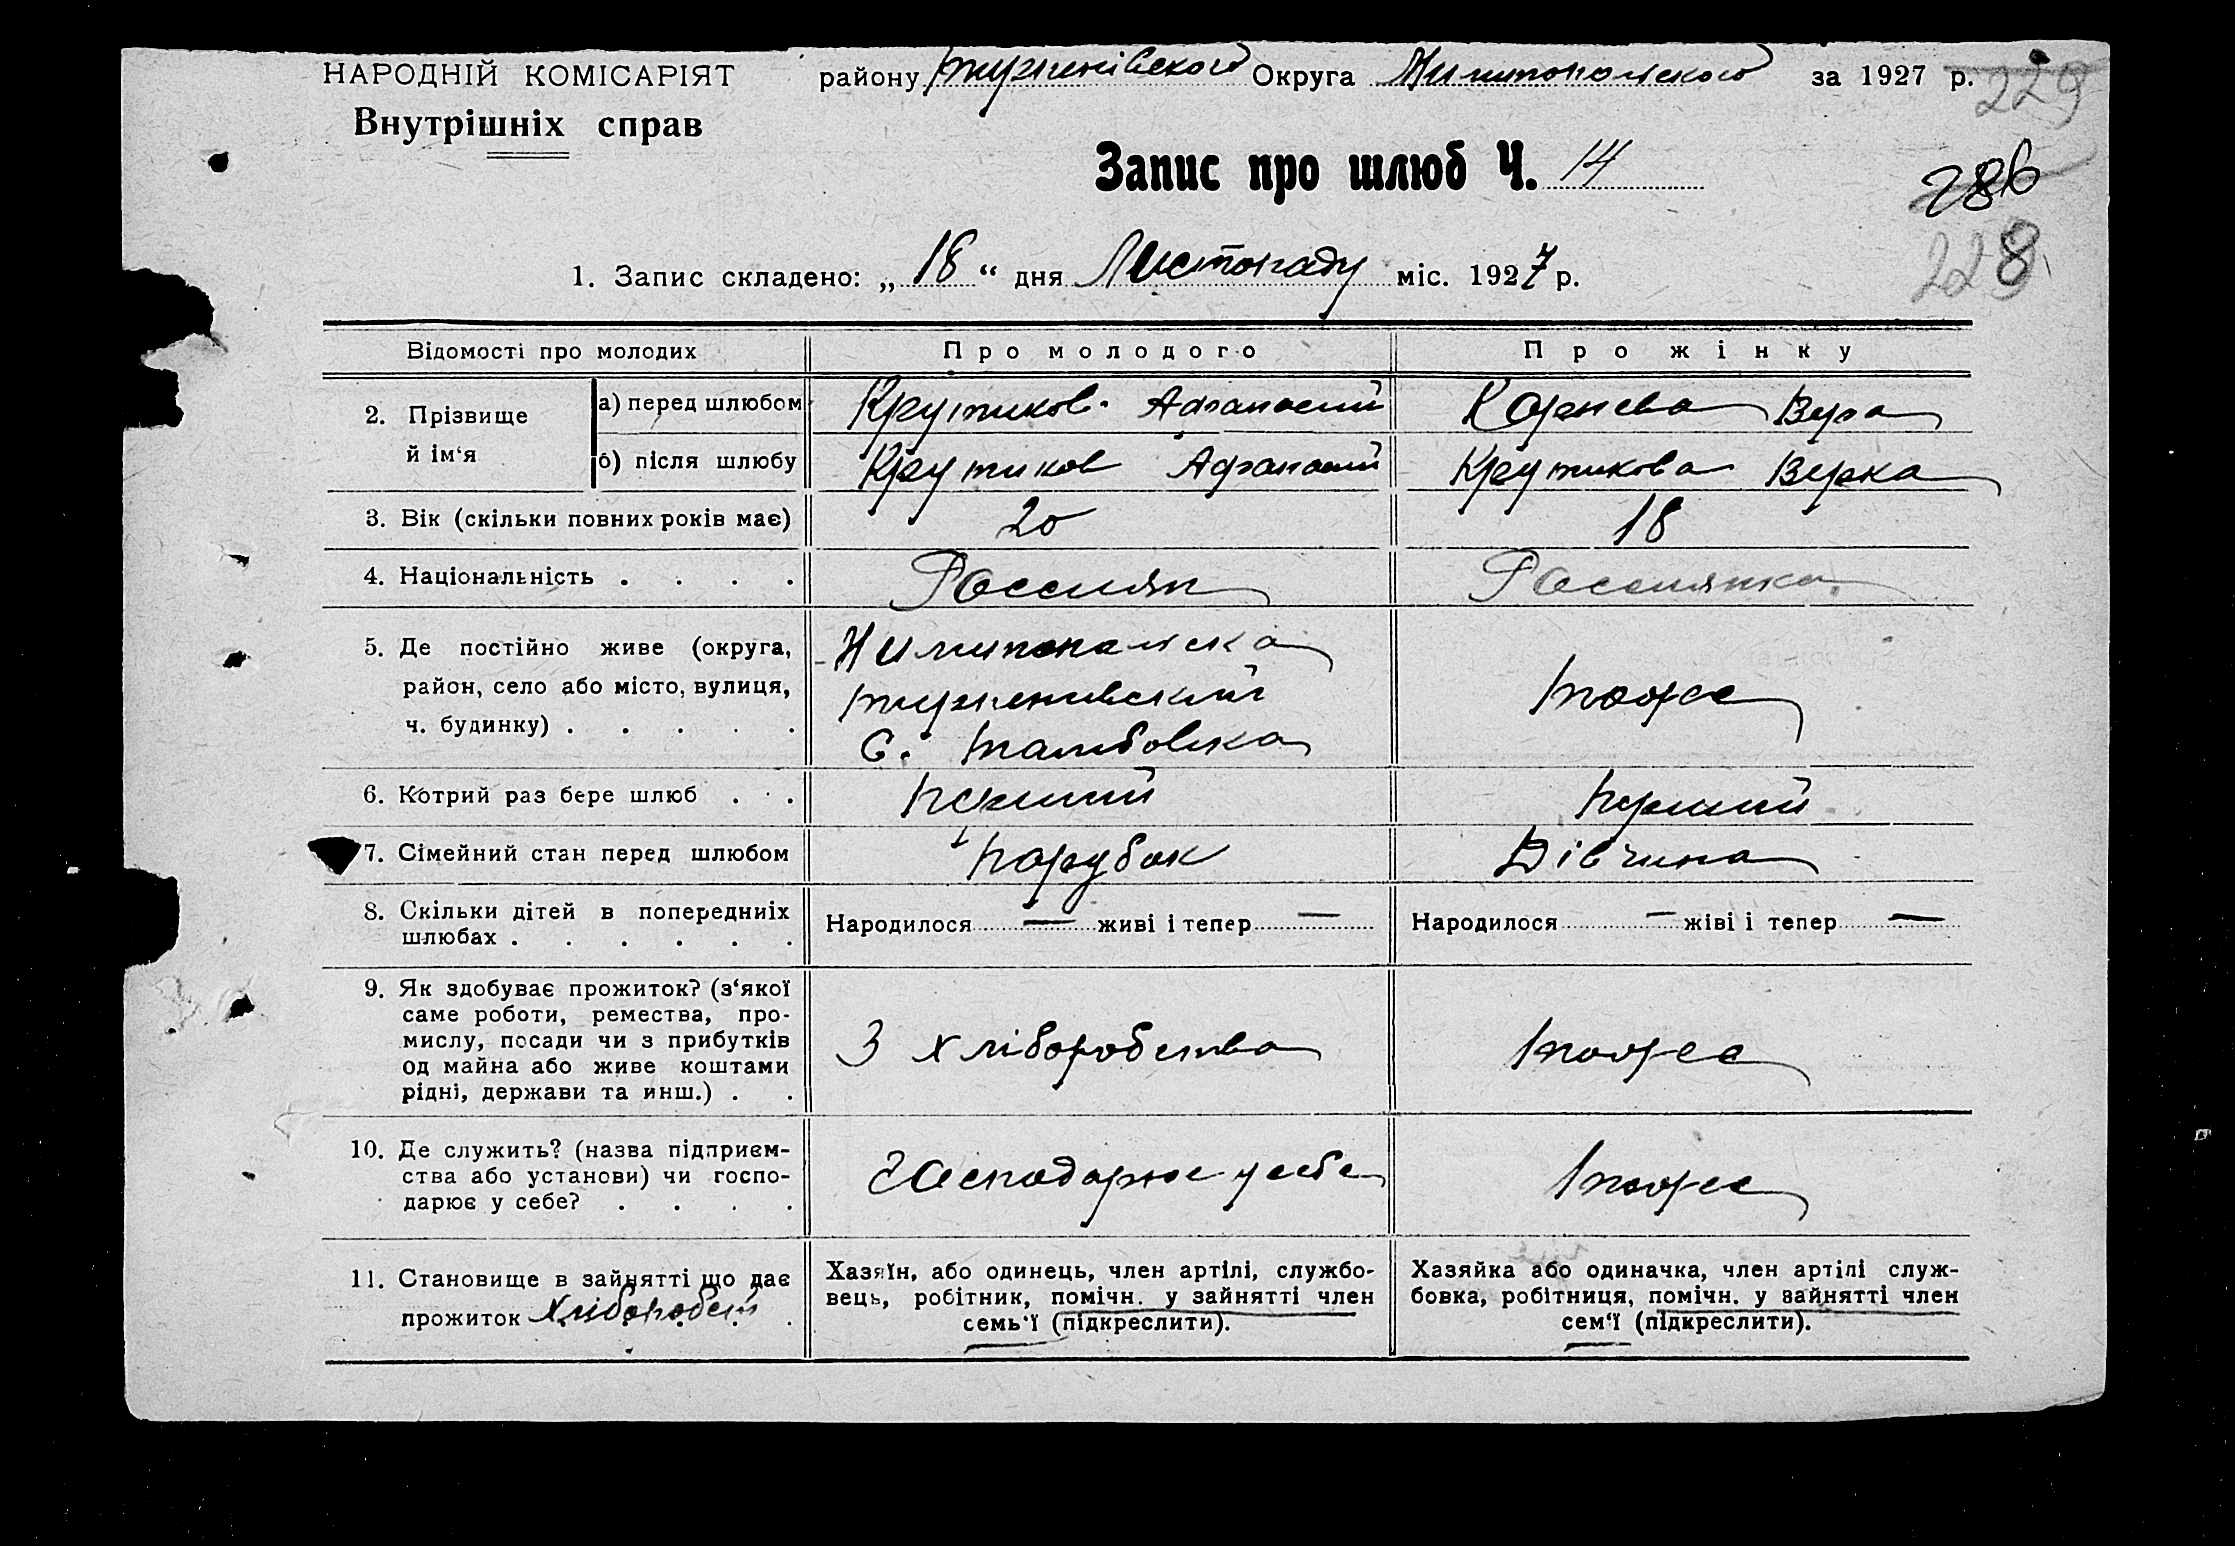 НАРОДНІЙ КОМІСАРІЯТ
Внутрішніх справ
району Округа за 1927 р.
229
Запис про шлюб Ч. 14
286
228
1. Запис складено: „18“ дня Листопаду міс. 1927 р.
Відомості про молодих Про молодого Про жінку
2. Прізвище й ім‘я
а) перед шлюбом Крутиков Афанасий Коренева Вера
б) після шлюбу Крутиков Афанасий Крутикова Верка
3. Вік (скільки повних років має) 20 18
4. Національність . . . . Россиян Россиянка
5. Де постійно живе (округа,
район, село або місто, вулиця,
ч. будинку) . . . . .
С. Тамбовка
тоже
6. Котрий раз бере шлюб . . . перший перший
7. Сімейний стан перед шлюбом Парубок Дівчина
8. Скільки дітей в попередниіх
шлюбах . . . . . .
Народилося — живі і тепер —
Народилося — жіві і тепер —
9. Як здобуває прожиток? (з‘якої
саме роботи, ремества, про-
мислу, посади чи з прибутків
од майна або живе коштами
рідні, держави та инш.) . .
З хліборобства
тоже
10. Де служить? (назва підприєм-
ства або установи) чи госпо-
дарює у себе? . . . .
Господарює у себе
тоже
11. Становище в зайнятті що дає
прожиток
Хазяїн, або одинець, член артілі, службо-
вець, робітник, помічн. у зайнятті член
семь‘ї (підкреслити).
Хазяйка або одиначка, член артілі служ-
бовка, робітниця, помічн. у зайнятті член
сем‘ї (підкреслити).